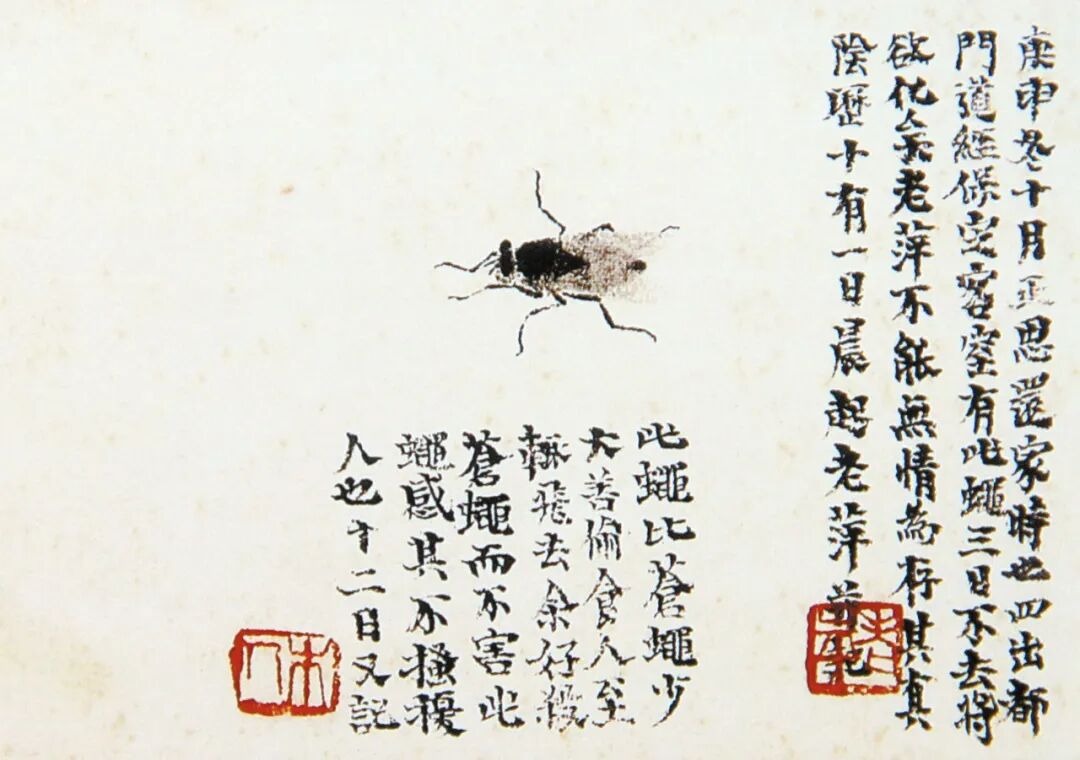 庚申冬十月正思還家時也四出都
門道經保定客室有此蠅三日不去將
欲化余老萍不能無情為存其真
陰歷十有一日晨起老萍並記
此蠅比蒼蠅少
大善偷食人至
輒飛去余好殺
蒼蠅而不害此
蠅感其不搔擾
人也十二日又記
木人